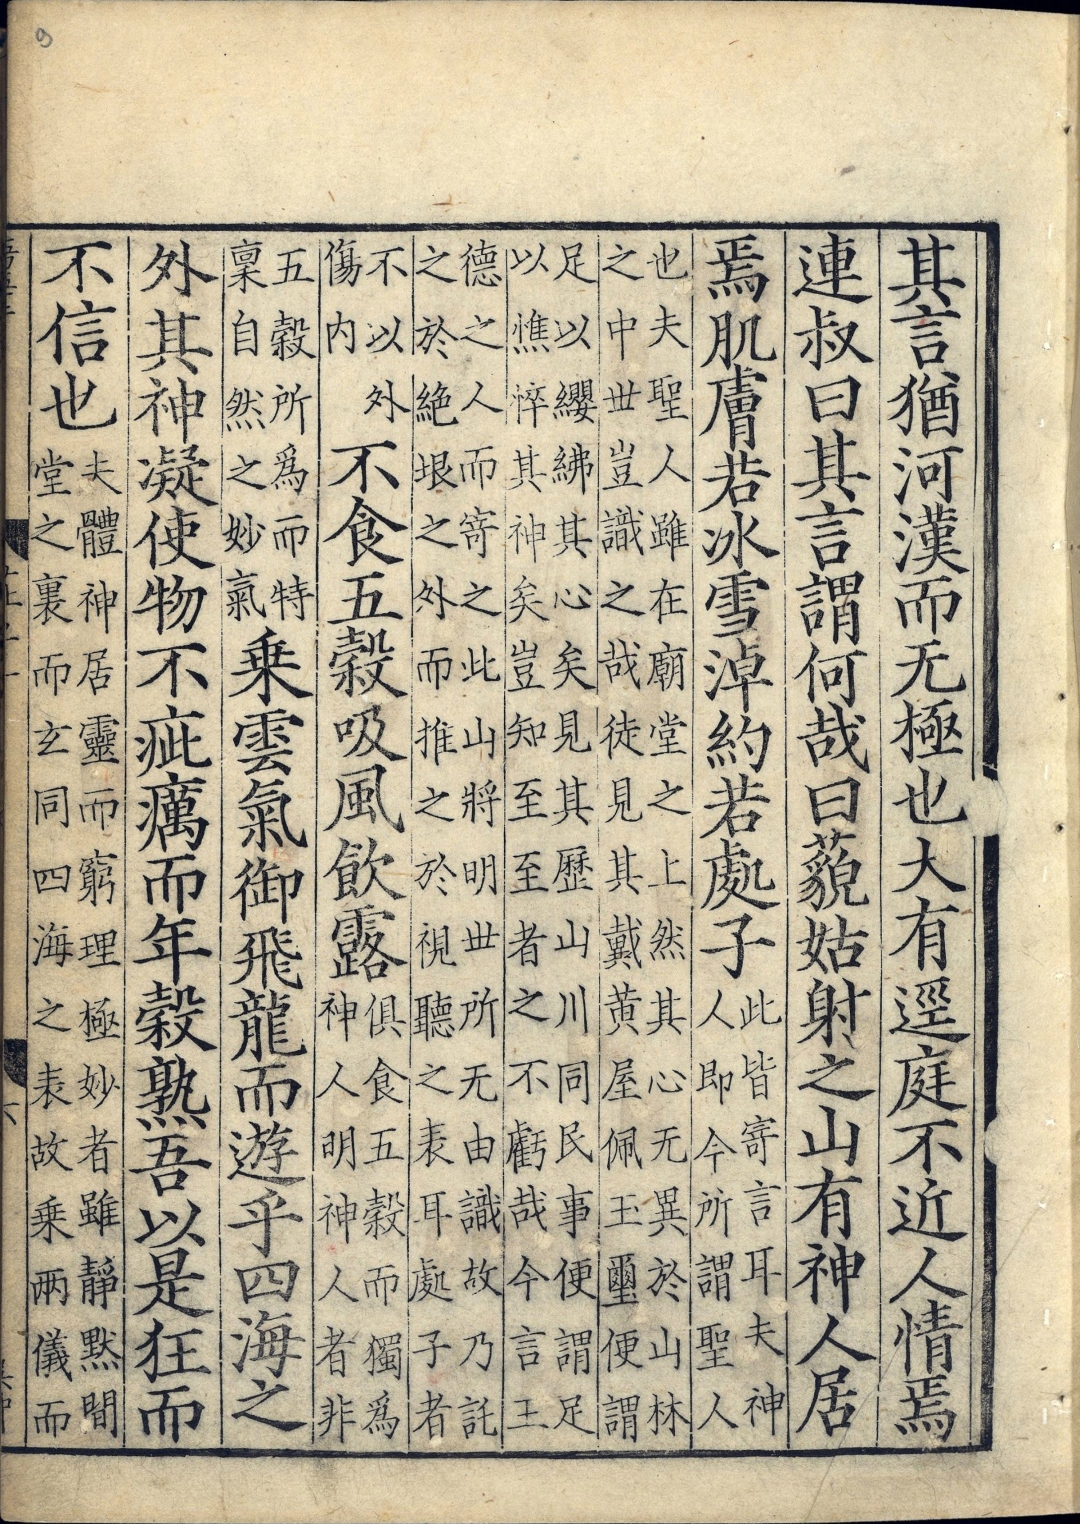 9
其言猶河漢而无極也大有逕庭不近人情焉
連叔曰其言謂何哉曰藐姑射之山有神人居
焉肌膚若冰雪淖約若處子
此皆寄言耳夫神
人即今所謂聖人
也夫聖人雖在廟堂之上然其心无異於山林
之中世豈識之哉徒見其戴黃屋佩玉璽便謂
足以纓紼其心矣見其歷山川同民事便謂足
以憔悴其神矣豈知至至者之不虧哉今言王
德之人而寄之此山將明世所无由識故乃託
之於絶垠之外而推之於視聽之表耳處子者
不以外
傷内
不食五穀吸風飲露
俱食五穀而獨爲
神人明神人者非
五穀所爲而特
稟自然之妙氣
乗雲氣御飛龍而遊乎四海之
外其神凝使物不疵癘而年穀熟吾以是狂而
不信也
夫體神居靈而窮理極妙者雖靜默間
堂之裏而玄同四海之表故乗兩儀而